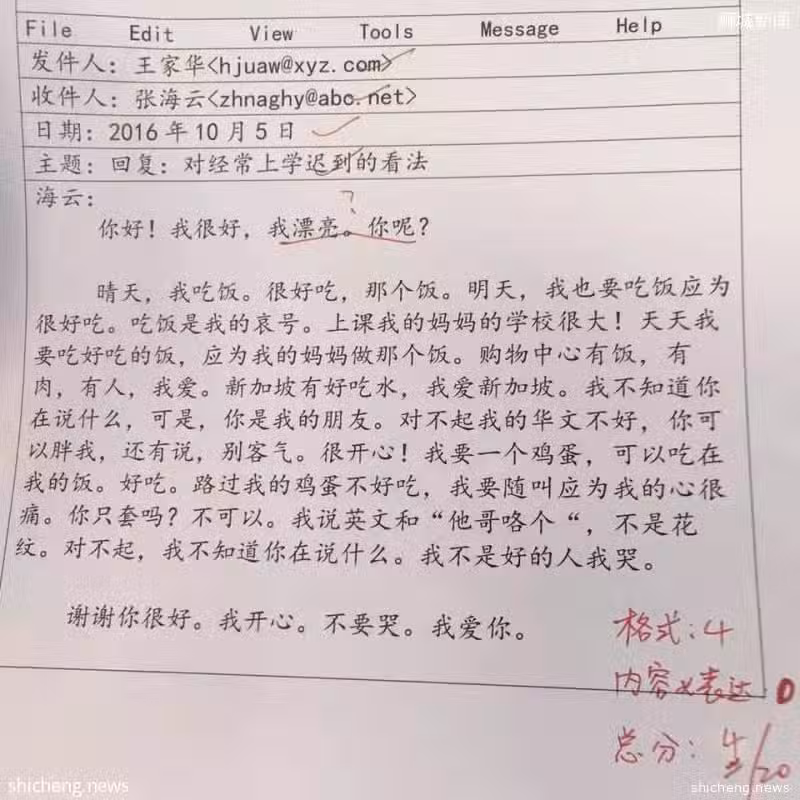 狮城新闻
File Edit View Tools Message Help
发件人：王家华<hjuaw@xyz.com>
收件人：张海云<zhnaghy@abc.net>
日期：2016 年 10 月 5 日
主题：回复：对经常上学迟到的看法
海云：
?
你好！我很好，我漂亮。你呢？
晴天，我吃饭。很好吃，那个饭。明天，我也要吃饭应为
很好吃。吃饭是我的哀号。上课我的妈妈的学校很大！天天我
要吃好吃的饭，应为我的妈妈做那个饭。购物中心有饭，有
肉，有人，我爱。新加坡有好吃水，我爱新加坡。我不知道你
在说什么，可是，你是我的朋友。对不起我的华文不好，你可
以胖我，还有说，别客气。很开心！我要一个鸡蛋，可以吃在
我的饭。好吃。路过我的鸡蛋不好吃，我要随叫应为我的心很
痛。你只套吗？不可以。我说英文和“他哥咯个“，不是花
纹。对不起，我不知道你在说什么。我不是好的人我哭。
谢谢你很好。我开心。不要哭。我爱你。
格式：4
内容×表达：0
总分：4/20
shicheng.news
shicheng.news